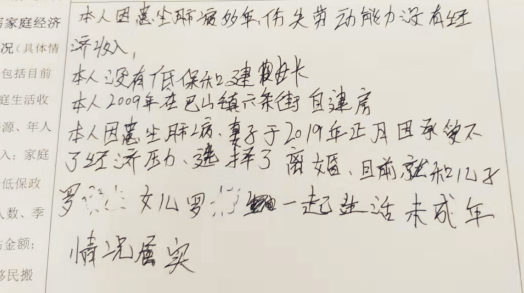 家庭经济
况(具体情
包括目前
庭生活收
源、年人
入:家庭
低保政
人数、季
金额:
民搬
本人因患尘肺病多年,伤失劳动能力没有经
济收入,
本人没有低保和建
本人2009年在巴山镇六条街自建房
本人因患尘肺病、妻子于2019年正月因承受不
了经济压力、选择了离婚、目前就和儿子
罗 女儿罗 一起生活未成年
情况属实